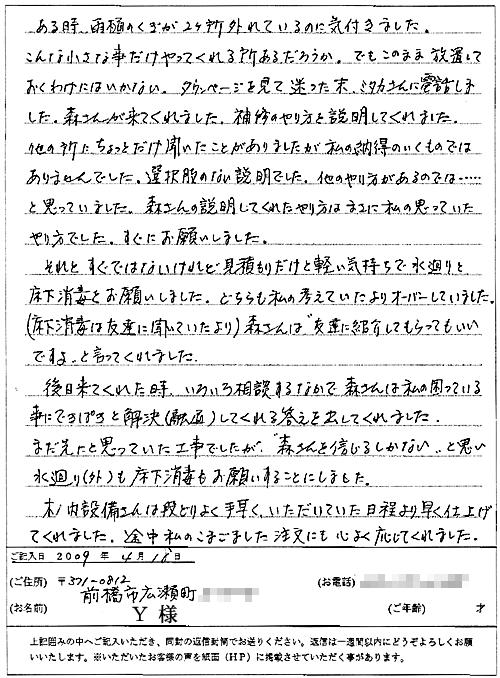 ある時、雨樋のくぎが2ヶ所外れているのに気付きました。
こんな小さな事だけやってくれる所あるだろうか。でもこのまま放置して
おくわけにはいかない。タウンページを見て迷った末、ミタカさんに電話しま
した。森さんが来てくれました。補修のやり方を説明してくれました。
他の所にちょっとだけ聞いたことがありましたが私の納得のいくものでは
ありませんでした。選択肢のない説明でした。他のやり方があるのでは……
と思っていました。森さんの説明してくれたやり方はまさに私の思っていた
やり方でした。すぐにお願いしました。
それと すぐではないけれど見積もりだけと軽い気持ちで水廻りと
床下消毒をお願いしました。どちらも私の考えていたよりオーバーしていました。
(床下消毒は友達に聞いていたより)森さんは"友達に紹介してもらってもいい
ですよ"と言ってくれました。
後日来てくれた時、いろいろ相談するなかで森さんは私の困っている
事にてきぱきと解決(融通)してくれる答えを出してくれました。
まだ先と思っていた工事でしたが、"森さんを信じるしかない"と思い
水廻り(外)も床下消毒もお願いすることにしました。
木ノ内設備さんは段どりよく手早く、いただいていた日程より早く仕上げ
てくれました。途中私のこまごました注文にも心よく応じてくれました。
ご記入日 2009 年 4月 18日
(ご住所) 〒371-0812
前橋市広瀬町
(お電話)
(お名前) Y 様 (ご年齢) 才
上記囲みの中へご記入いただき、同封の返信封筒でお送りください。返信は一週間以内にどうぞよろしくお願
いいたします。※いただいたお客様の声を紙面(HP)に掲載させていただく事があります。